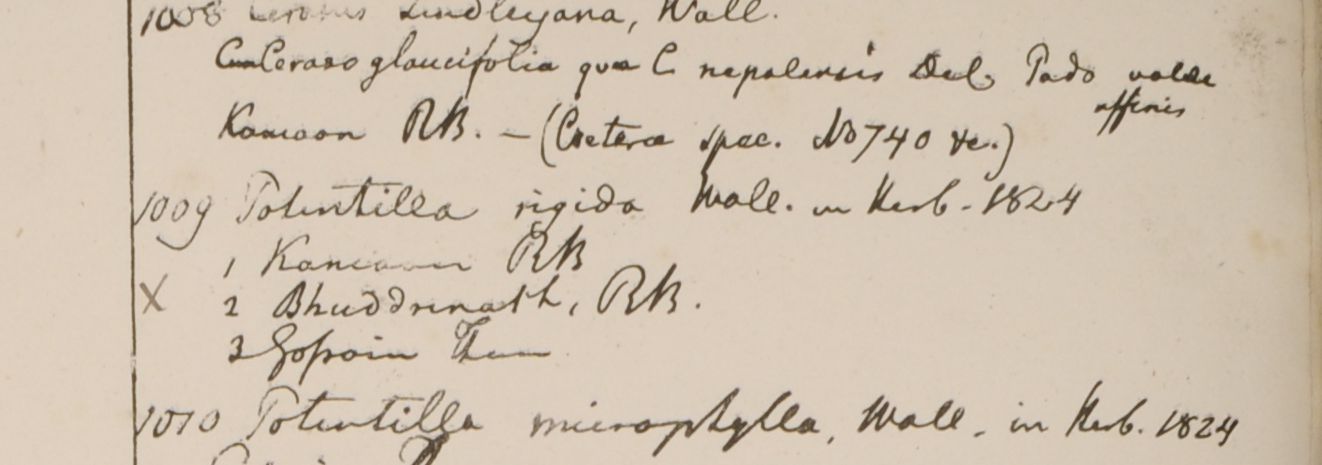 1008 Cerasus Lindleyana, Wall.
Cum Ceraso glaucifolia quæ C nepalensis Del. Pado valde
affinis
Kamaon RB. — (Cæteræ spec. No 740 &c.)
1009 Potentilla rigida Wall. in Herb. 1824
1 Kamaon RB
X 2 Bhuddrinath, RB.
3 Gossain Than
1010 Potentilla microphylla, Wall. in Herb. 1824